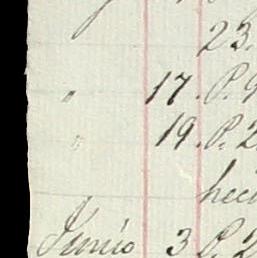 23.
" 17. P. 9
" 19. P. 2
hec
Junio 3 P. 2